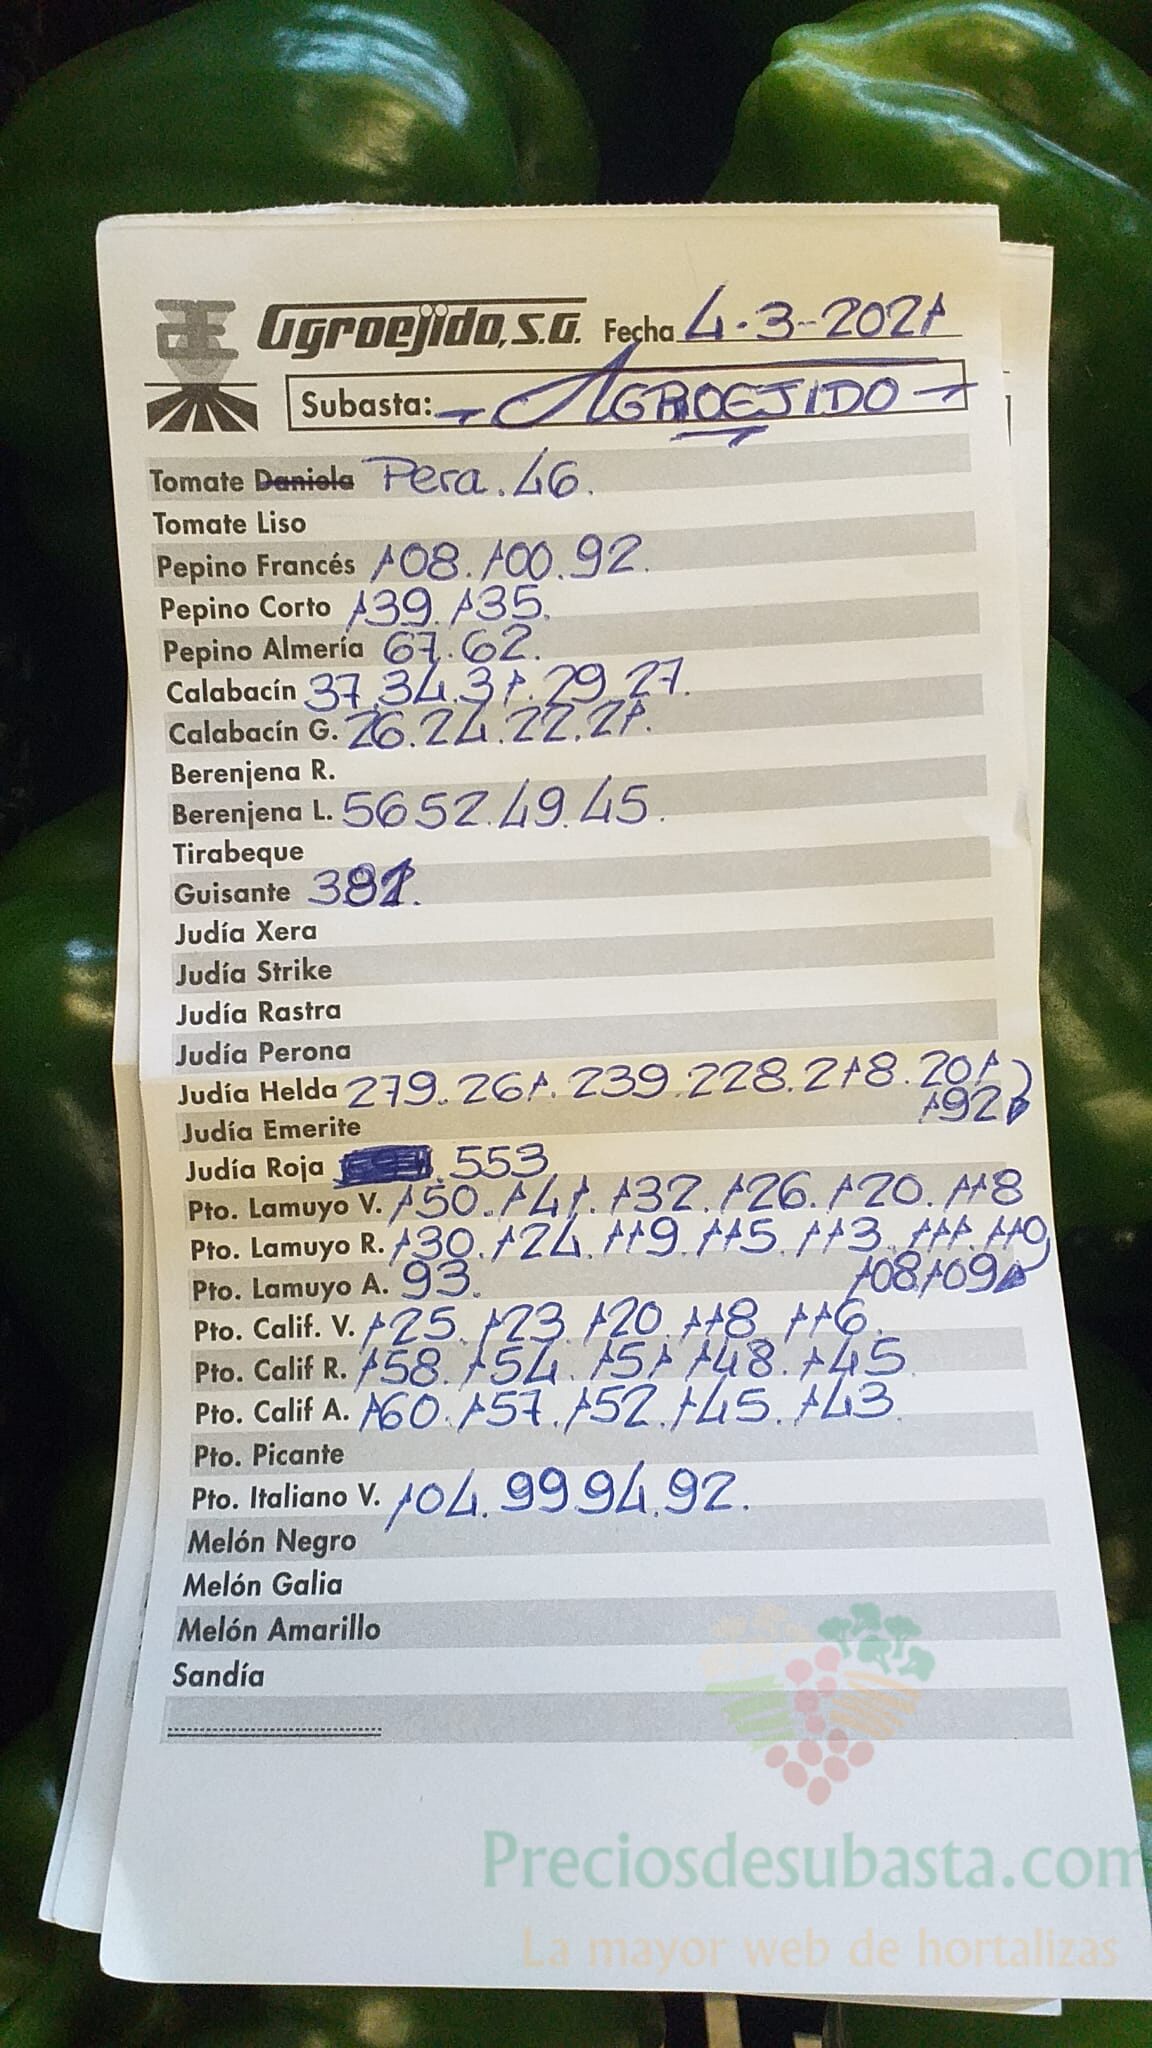 Agroejido, S.A. Fecha 4-3-2021
Subasta: - AGROEJIDO -
Tomate Daniela Pera. 46.
Tomate Liso
Pepino Francés 108. 100. 92.
Pepino Corto 139. 135.
Pepino Almería 67. 62.
Calabacín 37. 34. 31. 29. 27.
Calabacín G. 26. 24. 22. 21.
Berenjena R.
Berenjena L. 56 52. 49. 45.
Tirabeque
Guisante 381.
Judía Xera
Judía Strike
Judía Rastra
Judía Perona
Judía Helda 279. 261. 239. 228. 218. 201
192
Judía Emerite
Judía Roja . 553
Pto. Lamuyo V. 150. 141. 132. 126. 120. 118
Pto. Lamuyo R. 130. 124. 119. 115. 113. 111. 110
108. 109
Pto. Lamuyo A. 93.
Pto. Calif. V. 125. 123. 120. 118 116.
Pto. Calif R. 158. 154. 151 148. 145.
Pto. Calif A. 160. 157. 152. 145. 143.
Pto. Picante
Pto. Italiano V. 104. 99 94. 92.
Melón Negro
Melón Galia
Melón Amarillo
Sandía
Preciosdesubasta.com
La mayor web de hortalizas